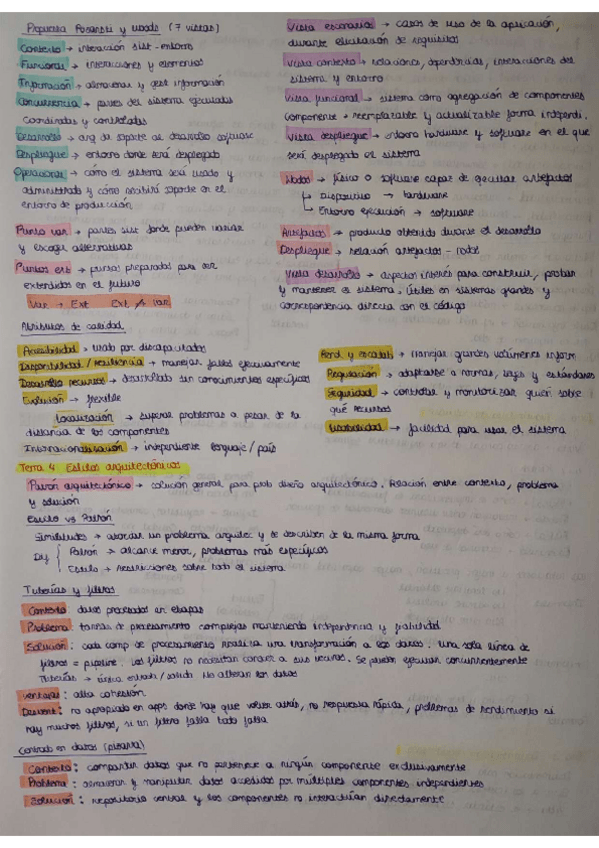 Propuesta Rozanski y Woods (7 vistas)
Contexto → interacción sist - entorno
Funcional → interacciones y elementos
Información → almacenar y gest información
Concurrencia → partes del sistema ejecutadas
coordinadas y controladas
Desarrollo → arq de soporte al desarrollo software
Despliegue → entorno donde será desplegado
Operacional → cómo el sistema será usado y
administrado y cómo recibirá soporte en el
entorno de producción
Punto var → partes sist donde pueden variar
y escoger alternativas
Puntos ext → puntos preparados para ser
extendidos en el futuro
Var → Ext Ext ↛ Var
Vista escenarios → casos de uso de la aplicación,
durante elicitación de requisitos
Vista contexto → relaciones, dependencias, interacciones del
sistema y entorno
Vista funcional → sistema como agregación de componentes
componente → reemplazable y actualizable forma independi.
Vista despliegue → entorno hardware y software en el que
será desplegado el sistema
Nodos → físico o software capaz de ejecutar artefactos
↳ Dispositivo → hardware
↳ Entorno ejecución → software
Artefactos → producto obtenido durante el desarrollo
Despliegue → relación artefactos - nodos
Vista desarrollo → aspectos interés para construir, probar
y mantener el sistema. Útiles en sistemas grandes y
correspondencia directa con el código
Atributos de calidad
Accesibilidad → usado por discapacitados
Disponibilidad / resiliencia → manejar fallos efectivamente
Desarrollo recursos → desarrollado sin conocimientos específicos
Evolución → flexible
Localización → superar problemas a pesar de la
distancia de los componentes
Internacionalización → independiente lenguaje / país
Rend. y escalab → manejar grandes volúmenes inform
Regulación → adaptarse a normas, leyes y estándares
Seguridad → controlar y monitorizar quién sobre
qué recursos
Usabilidad → facilidad para usar el sistema
Tema 4 Estilos arquitectónicos
Patrón arquitectónico → solución general para prob diseño arquitectónico. Relación entre contexto, problema
y solución
Estilo vs Patrón
Similitudes → abordar un problema arquitec y se describen de la misma forma
Dif { Patrón → alcance menor, problemas más específicos
Estilo → restricciones sobre todo el sistema
Tuberías y filtros
Contexto: datos procesados en etapas
Problema: tareas de procesamiento complejas manteniendo independencia y
Solución: cada comp de procesamiento realiza una transformación a los datos. Una sola línea de
filtros = pipeline. Los filtros no necesitan conocer a sus vecinos. Se pueden ejecutar concurrentemente
Tuberías → única entrada / salida. No alteran los datos
Ventajas: alta cohesión
Desvent: no apropiado en apps donde hay que volver atrás, no respuesta rápida, problemas de rendimiento si
hay muchos filtros, si un filtro falla todo falla
Centrado en datos (pizarra)
Contexto: compartir datos que no pertenece a ningún componente exclusivamente
Problema: almacenar y manipular datos accedidos por múltiples componentes independientes
Solución: repositorio central y los componentes no interactúan directamente